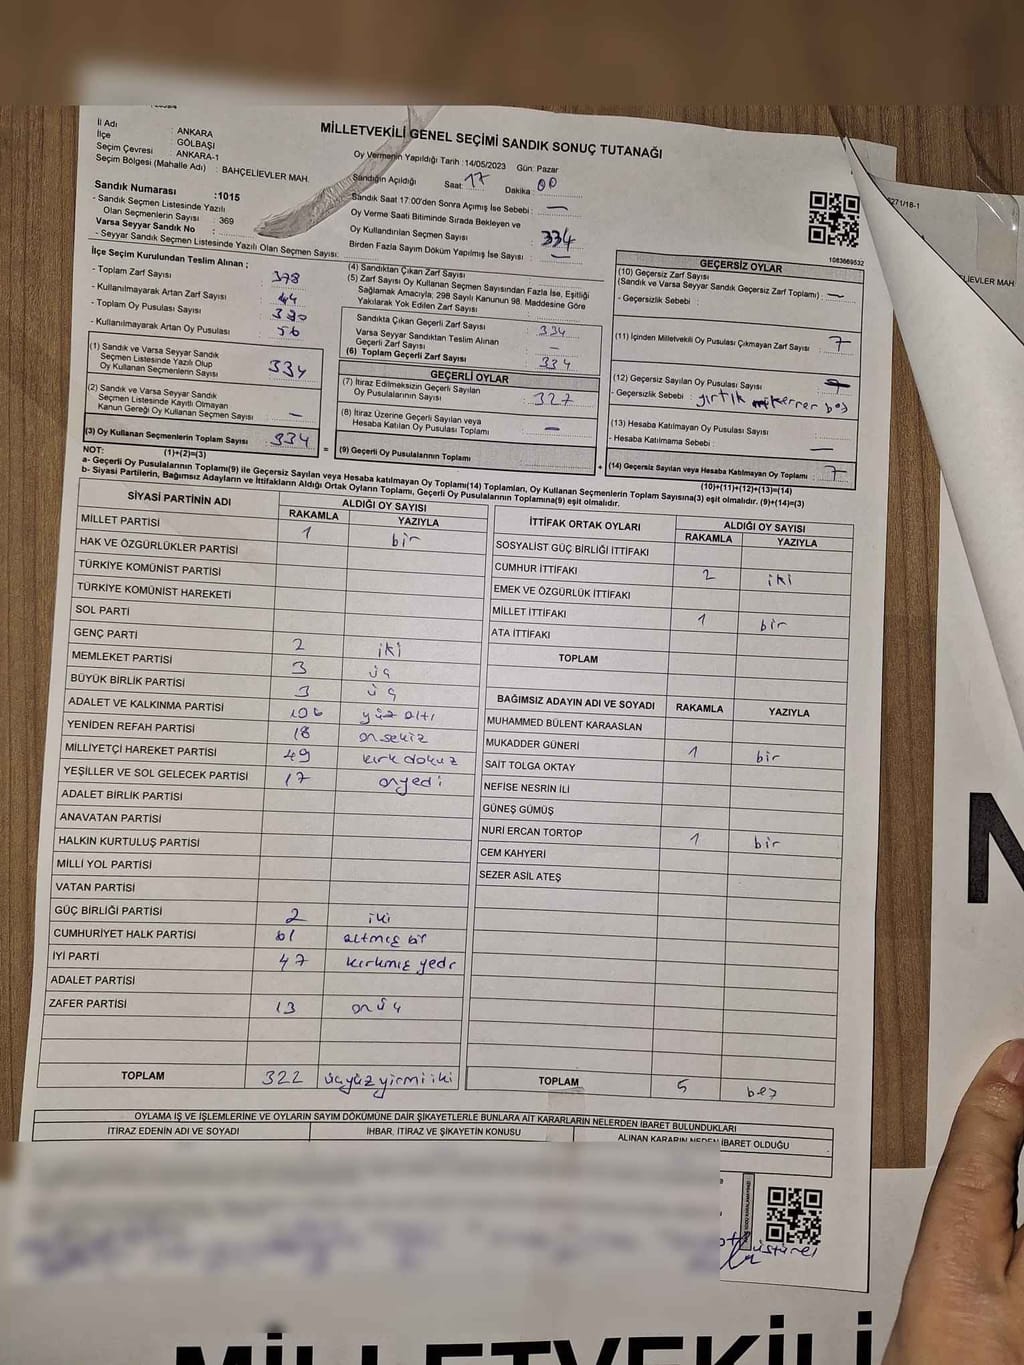 MİLLETVEKİLİ GENEL SEÇİMİ SANDIK SONUÇ TUTANAĞI
İl Adı : ANKARA
İlçe : GÖLBAŞI
Seçim Çevresi : ANKARA-1
Seçim Bölgesi (Mahalle Adı) : BAHÇELİEVLER MAH.
Oy Vermenin Yapıldığı Tarih :14/05/2023 Gün: Pazar
Sandığın Açıldığı Saat: 17 Dakika 00
Sandık Saat 17:00'den Sonra Açımış İse Sebebi : —
Oy Verme Saati Bitiminde Sırada Bekleyen ve
Oy Kullandırılan Seçmen Sayısı : 334
Birden Fazla Sayım Döküm Yapılmış İse Sayısı : —
Sandık Numarası :1015
- Sandık Seçmen Listesinde Yazılı
Olan Seçmenlerin Sayısı : 369
Varsa Seyyar Sandık No :
- Seyyar Sandık Seçmen Listesinde Yazılı Olan Seçmen Sayısı:
1083669532
İlçe Seçim Kurulundan Teslim Alınan ;
- Toplam Zarf Sayısı : 378
- Kullanılmayarak Artan Zarf Sayısı : 44
- Toplam Oy Pusulası Sayısı :
- Kullanılmayarak Artan Oy Pusulası : 56
(1) Sandık ve Varsa Seyyar Sandık
Seçmen Listesinde Yazılı Olup
Oy Kullanan Seçmenlerin Sayısı : 334
(2) Sandık ve Varsa Seyyar Sandık
Seçmen Listesinde Kayıtlı Olmayan
Kanun Gereği Oy Kullanan Seçmen Sayısı : —
(3) Oy Kullanan Seçmenlerin Toplam Sayısı : 334
(1)+(2)=(3)
(4) Sandıktan Çıkan Zarf Sayısı :
(5) Zarf Sayısı Oy Kullanan Seçmen Sayısından Fazla İse, Eşitliği
Sağlamak Amacıyla; 298 Sayılı Kanunun 98. Maddesine Göre
Yakılarak Yok Edilen Zarf Sayısı :
Sandıkta Çıkan Geçerli Zarf Sayısı : 334
Varsa Seyyar Sandıktan Teslim Alınan
Geçerli Zarf Sayısı : —
(6) Toplam Geçerli Zarf Sayısı : 334
GEÇERLİ OYLAR
(7) İtiraz Edilmeksizin Geçerli Sayılan
Oy Pusulalarının Sayısı : 327
(8) İtiraz Üzerine Geçerli Sayılan veya
Hesaba Katılan Oy Pusulası Toplamı : —
(9) Geçerli Oy Pusulalarının Toplamı :
GEÇERSİZ OYLAR
(10) Geçersiz Zarf Sayısı
(Sandık ve Varsa Seyyar Sandık Geçersiz Zarf Toplamı) : —
- Geçersizlik Sebebi :
(11) İçinden Milletvekili Oy Pusulası Çıkmayan Zarf Sayısı : 7
(12) Geçersiz Sayılan Oy Pusulası Sayısı :
- Geçersizlik Sebebi : yırtık mükerrer boş
(13) Hesaba Katılmayan Oy Pusulası Sayısı :
- Hesaba Katılmama Sebebi : —
(14) Geçersiz Sayılan veya Hesaba Katılmayan Oy Toplamı : 7
(10)+(11)+(12)+(13)=(14)
NOT:
a- Geçerli Oy Pusulalarının Toplamı(9) ile Geçersiz Sayılan veya Hesaba katılmayan Oy Toplamı(14) Toplamları, Oy Kullanan Seçmenlerin Toplam Sayısına(3) eşit olmalıdır. (9)+(14)=(3)
b- Siyasi Partilerin, Bağımsız Adayların ve İttifakların Aldığı Ortak Oyların Toplamı, Geçerli Oy Pusulalarının Toplamına(9) eşit olmalıdır.
SİYASİ PARTİNİN ADI ALDIĞI OY SAYISI
RAKAMLA YAZIYLA
MİLLET PARTİSİ 1 bir
HAK VE ÖZGÜRLÜKLER PARTİSİ
TÜRKİYE KOMÜNİST PARTİSİ
TÜRKİYE KOMÜNİST HAREKETİ
SOL PARTİ
GENÇ PARTİ 2 iki
MEMLEKET PARTİSİ 3 üç
BÜYÜK BİRLİK PARTİSİ 3 üç
ADALET VE KALKINMA PARTİSİ 106 yüz altı
YENİDEN REFAH PARTİSİ 18 onsekiz
MİLLİYETÇİ HAREKET PARTİSİ 49 kırk dokuz
YEŞİLLER VE SOL GELECEK PARTİSİ 17 onyedi
ADALET BİRLİK PARTİSİ
ANAVATAN PARTİSİ
HALKIN KURTULUŞ PARTİSİ
MİLLİ YOL PARTİSİ
VATAN PARTİSİ
GÜÇ BİRLİĞİ PARTİSİ 2 iki
CUMHURİYET HALK PARTİSİ 61 altmış bir
İYİ PARTİ 47 kırkmış yedi
ADALET PARTİSİ
ZAFER PARTİSİ 13 onüç
TOPLAM 322 üçyüz yirmi iki
İTTİFAK ORTAK OYLARI ALDIĞI OY SAYISI
RAKAMLA YAZIYLA
SOSYALİST GÜÇ BİRLİĞİ İTTİFAKI
CUMHUR İTTİFAKI 2 iki
EMEK VE ÖZGÜRLÜK İTTİFAKI
MİLLET İTTİFAKI 1 bir
ATA İTTİFAKI
TOPLAM
BAĞIMSIZ ADAYIN ADI VE SOYADI RAKAMLA YAZIYLA
MUHAMMED BÜLENT KARAASLAN
MUKADDER GÜNERİ 1 bir
SAİT TOLGA OKTAY
NEFİSE NESRİN İLİ
GÜNEŞ GÜMÜŞ
NURİ ERCAN TORTOP 1 bir
CEM KAHYERİ
SEZER ASİL ATEŞ
TOPLAM 5 beş
OYLAMA İŞ VE İŞLEMLERİNE VE OYLARIN SAYIM DÖKÜMÜNE DAİR ŞİKAYETLERLE BUNLARA AİT KARARLARIN NELERDEN İBARET BULUNDUKLARI
İTİRAZ EDENİN ADI VE SOYADI İHBAR, İTİRAZ VE ŞİKAYETİN KONUSU ALINAN KARARIN NEDEN İBARET OLDUĞU
271/18-1
LİEVLER MAH
N
MİLLETVEKİLİ